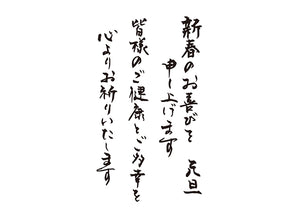 新春のお喜びを
申し上げます
皆様のご健康とご多幸を
心よりお祈りいたします
元旦